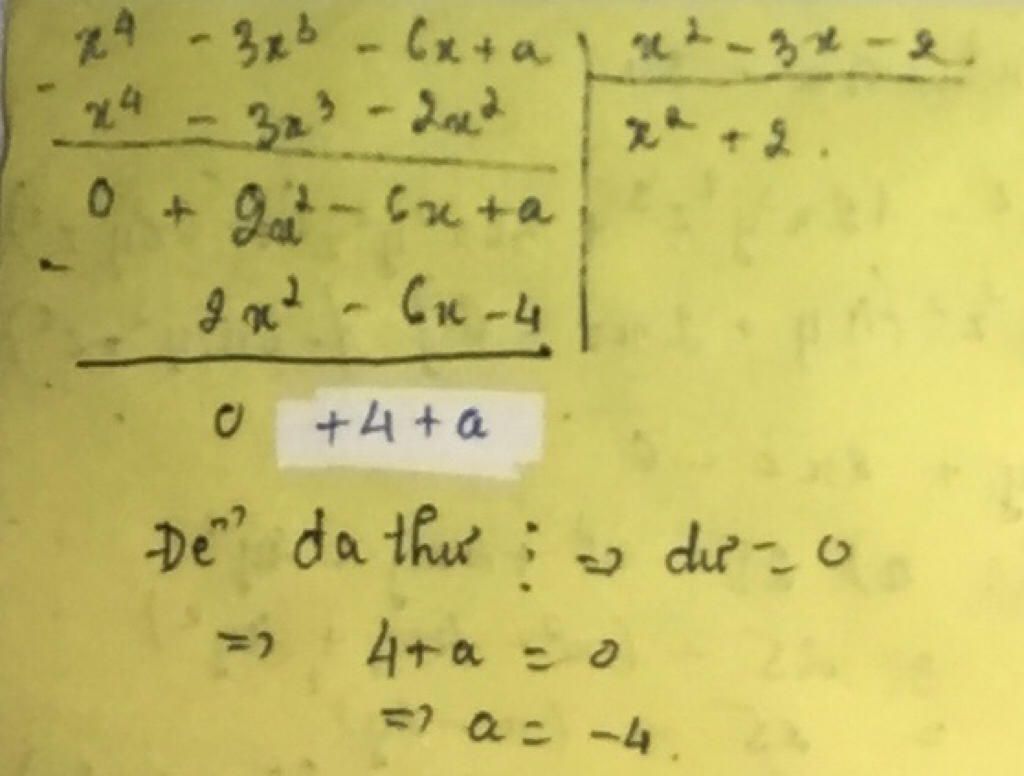 x⁴ - 3x³ - 6x + a | x² - 3x - 2
- x⁴ - 3x³ - 2x² | x² + 2.
0 + 2x² - 6x + a
- 2x² - 6x - 4
0 +4 + a
Để đa thư ⋮ => dư = 0
=> 4+a = 0
=> a = -4.